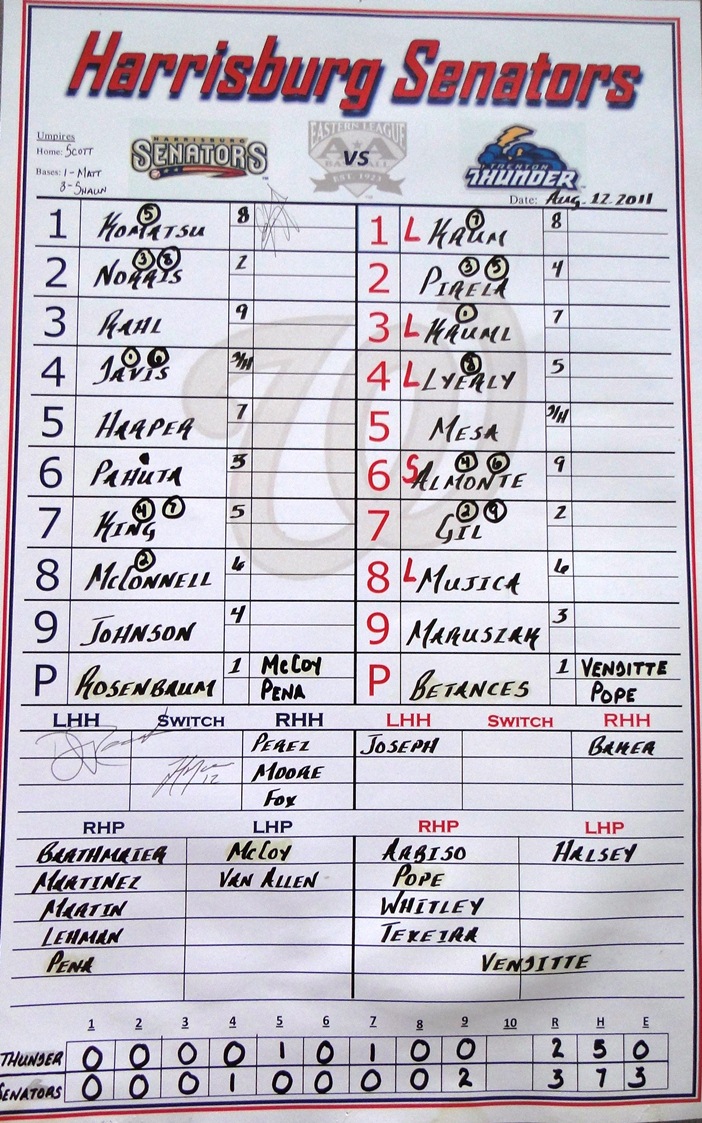 Harrisburg Senators
Umpires
Home: SCOTT
Bases: 1 - MATT
3 - SHAUN
HARRISBURG SENATORS
EASTERN LEAGUE AA BASEBALL EST. 1923
VS
TRENTON THUNDER
Date: Aug. 12. 2011
1 KOMATSU 5 8 1 L KRUM 7 8
2 NORRIS 3 8 2 2 PIRELA 3 5 4
3 RAHL 9 3 L KRUML 1 7
4 DAVIS 1 6 DH 4 L LYERLY 8 5
5 HARPER 7 5 MESA DH
6 PAHUTA 3 6 S ALMONTE 4 6 9
7 KING 4 7 5 7 GIL 2 9 2
8 MCCONNELL 2 6 8 L MUJICA 6
9 JOHNSON 4 9 MARUSZAK 3
P ROSENBAUM 1 McCOY P BETANCES 1 VENDITTE
PENA POPE
LHH SWITCH RHH LHH SWITCH RHH
PEREZ JOSEPH BAKER
MOORE
12
FOX
RHP LHP RHP LHP
BARTHMAIER McCOY ARBISO HALSEY
MARTINEZ VAN ALLEN POPE
MARTIN WHITLEY
LEHMAN TEXEIRA
PENA VENDITTE
1 2 3 4 5 6 7 8 9 10 R H E
THUNDER 0 0 0 0 1 0 1 0 0 2 5 0
SENATORS 0 0 0 1 0 0 0 0 2 3 7 3